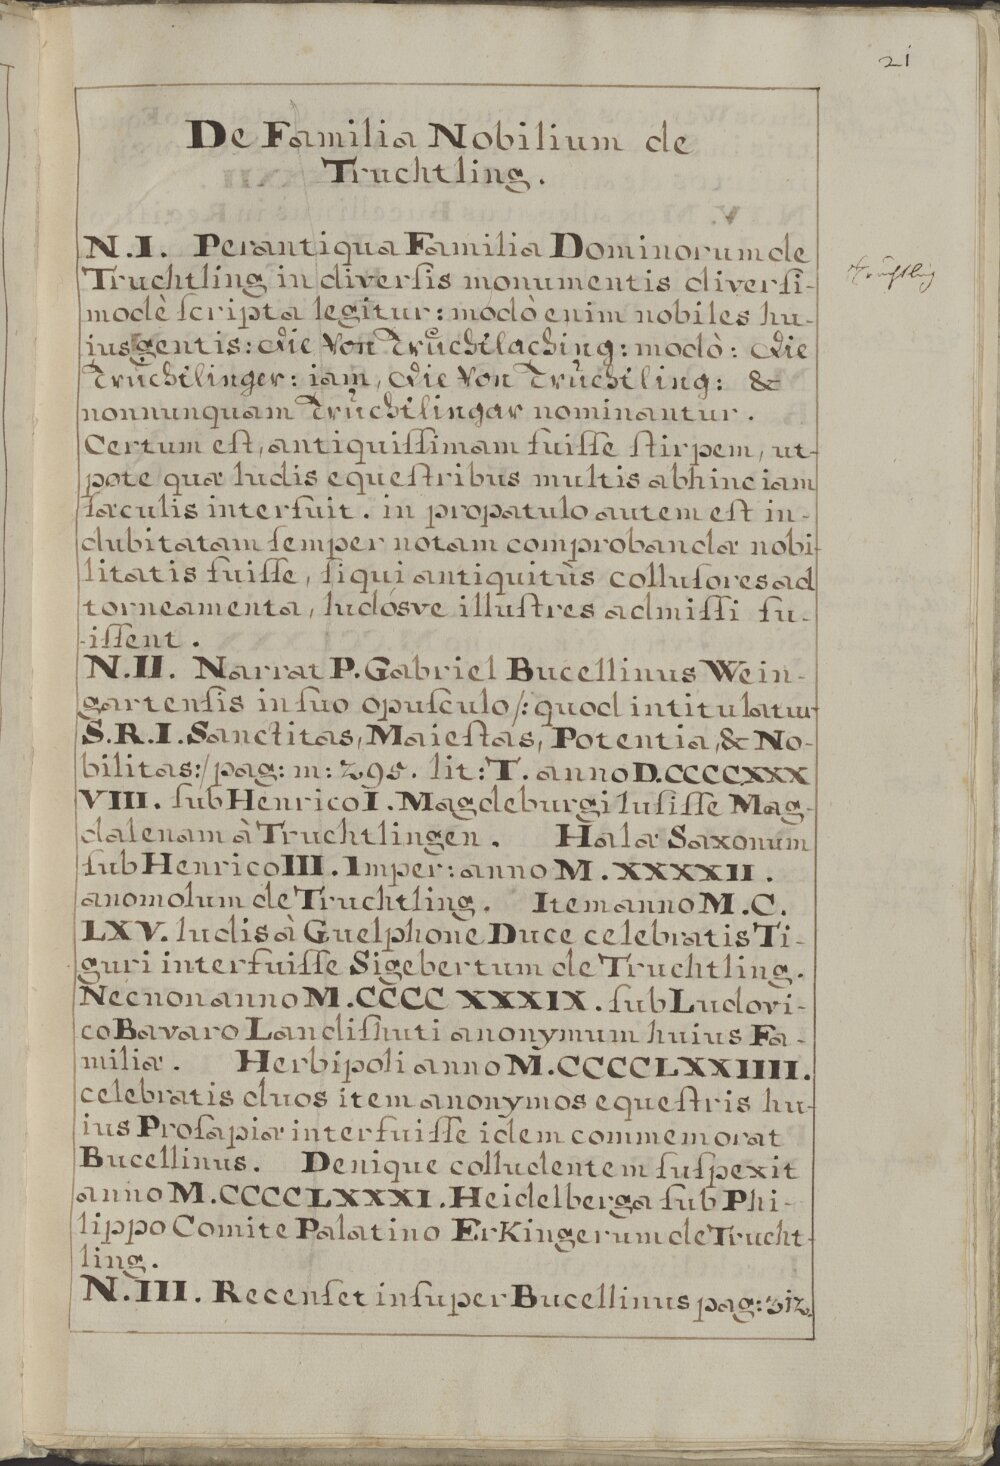 21
De Familia Nobilium de
Truchtling.
N.I. Perantiqua Familia Dominorum de
Truchtling in diversis monumentis diversi-
modè scripta legitur: modò enim nobiles hu-
ius gentis: Die Von Trůchtlaching: modò: Die
Trůchtlinger: iam, Die Von Trůchtling: &
nonnunquam Trůchtlingar nominantur.
Truchtling
Certum est, antiquissimam fuisse stirpem, ut-
pote quæ ludis equestribus multis abhinc iam
sæculis interfuit. in propatulo autem est in-
dubitatam semper notam comprobandæ nobi-
litatis fuisse, siqui antiquitùs collusores ad
torneamenta, ludósve illustres admissi fu-
-issent.
N.II. Narrat P. Gabriel Bucellinus Wein-
gartensis in suo opusculo /: quod intitulatur
S.R.I. Sanctitas, Maiestas, Potentia, & No-
bilitas:/ pag: m: 295. lit: T. anno D.CCCCXXX
VIII. sub Henrico I. Magdeburgi lusisse Mag-
dalenam à Truchtlingen. Halæ Saxonum
sub Henrico III. Imper: anno M.XXXXII.
anomolum de Truchtling. Item anno M.C.
LXV. ludis à Guelphone Duce celebratis Ti-
guri interfuisse Sigebertum de Truchtling.
Necnon anno M.CCCC XXXIX. sub Ludovi-
co Bavaro Landishuti anonymum huius Fa-
miliæ. Herbipoli anno M.CCCCLXXIIII.
celebratis duos item anonymos equestris hu-
ius Prosapiæ interfuisse idem commemorat
Bucellinus. Denique colludentem suspexit
anno M.CCCCLXXXI. Heidelberga sub Phi-
lippo Comite Palatino Erkingerum de Trucht-
ling.
N.III. Recenset insuper Bucellinus pag: 312.